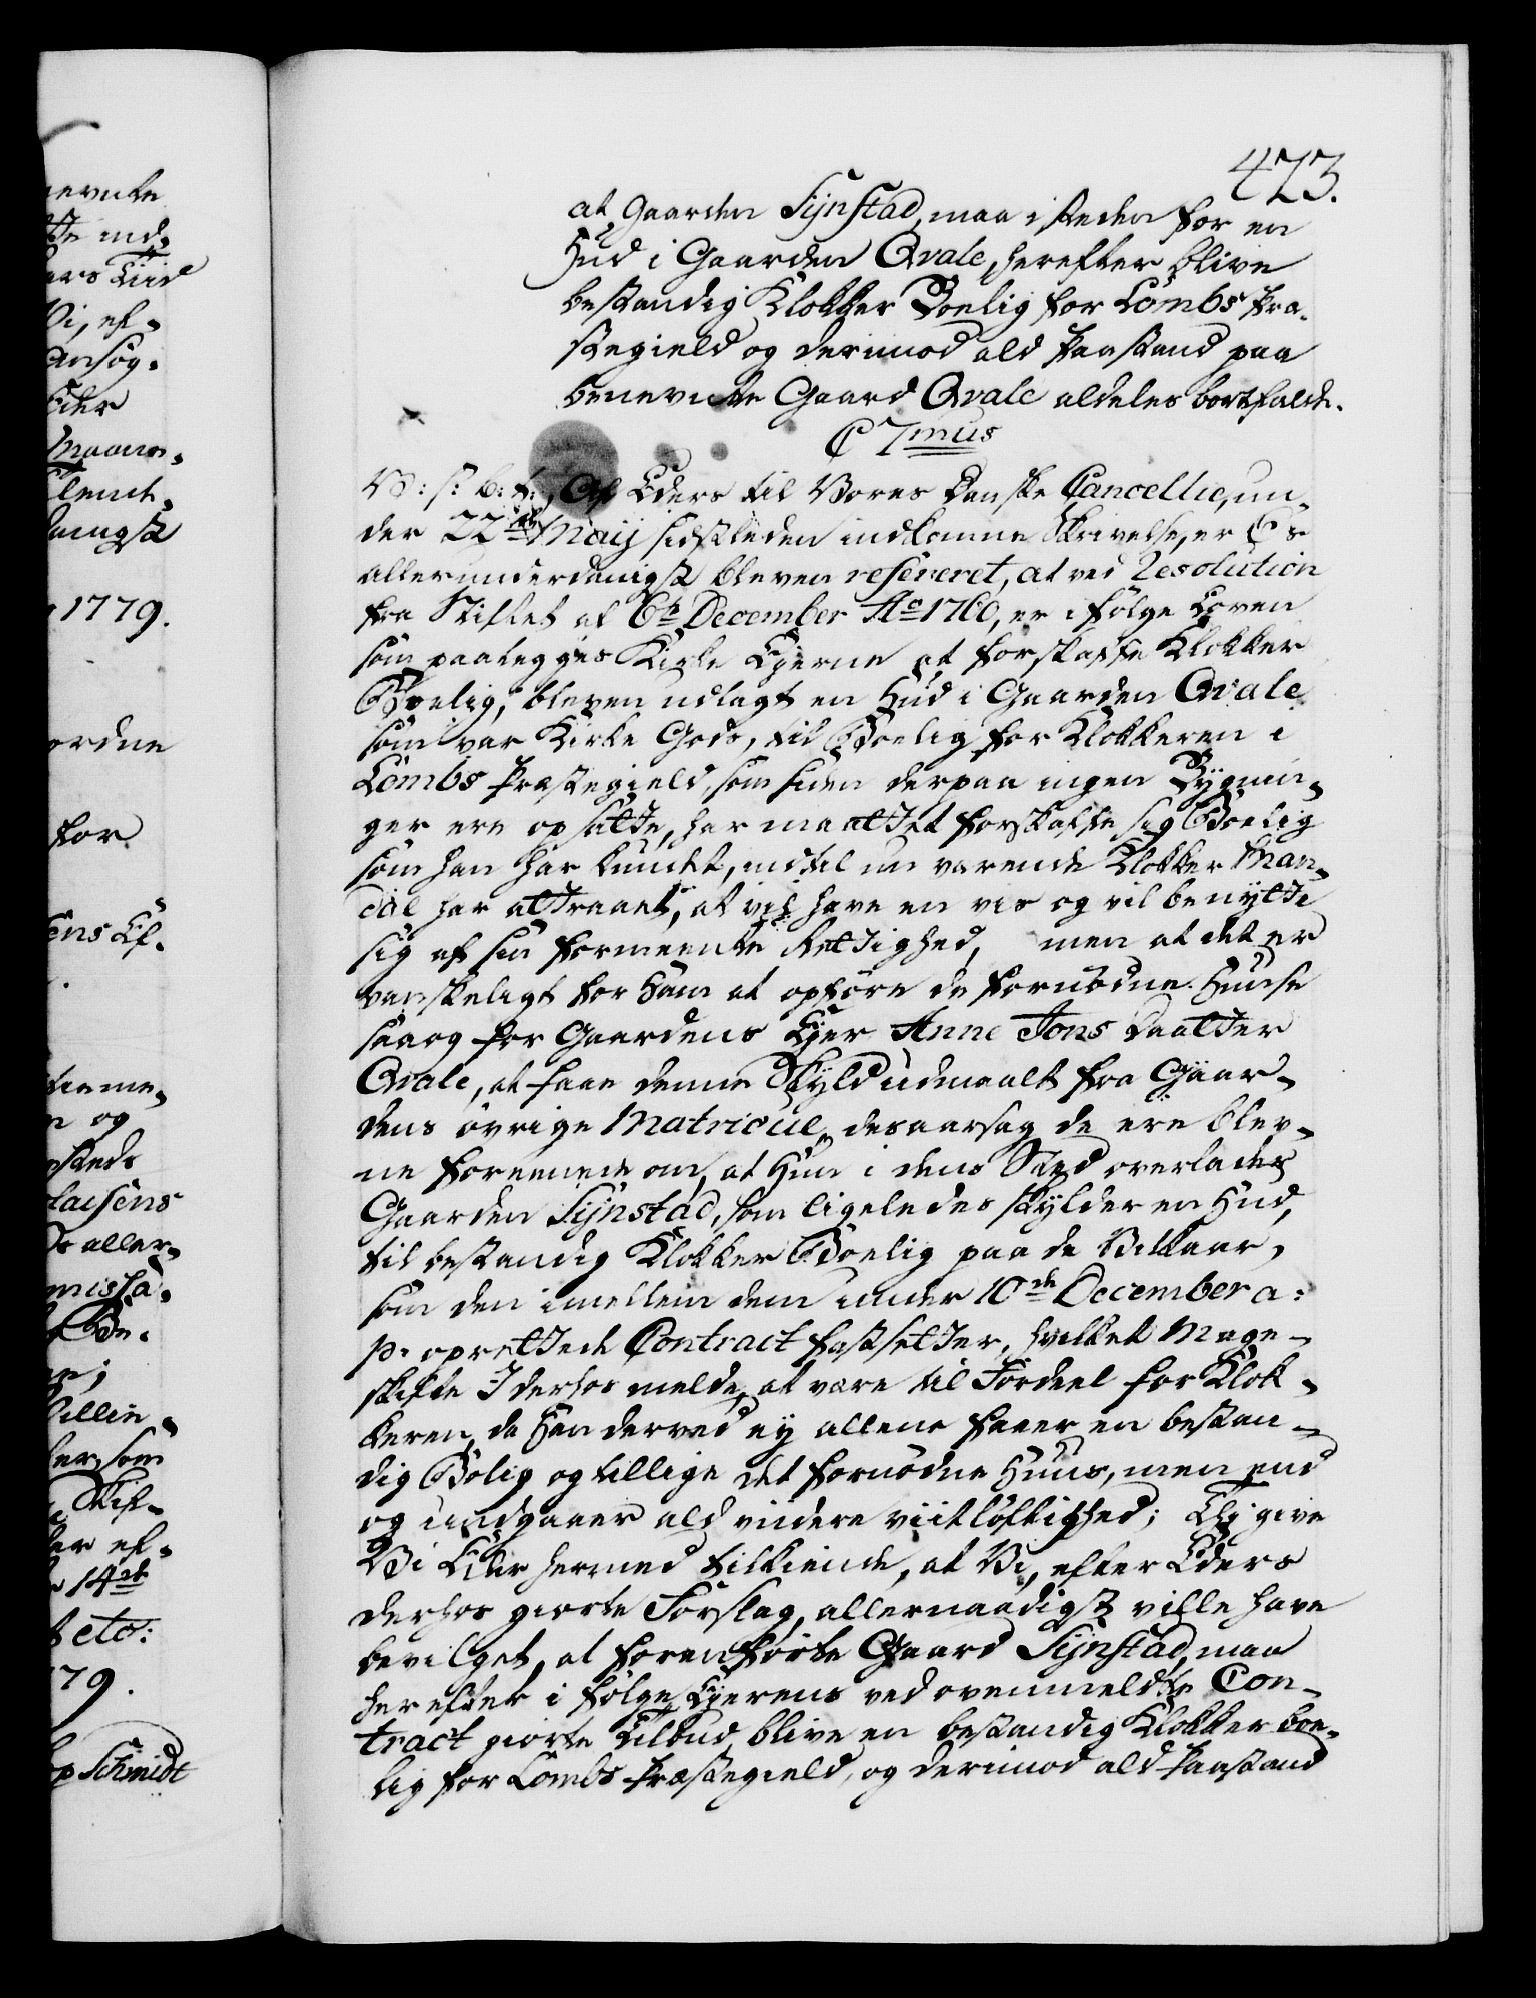 473.
at Gaarden Sÿnstad, maa i steden for en
Hud i Gaarden Qvale, herefter blive
bestandig Klokker Boelig for Lombs Præ-
stegield og derimod ald Paastand paa
benevnte Gaard Qvale aldeles bortfalde.
C 7mus
V: s: b: t:, Af Eders til Vores Danske Cancellie, un-
der 22de Maij sidstleden indkomne Skrivelse, er Os
allerunderdanigst bleven refereret, at ved Resolution
fra Stiftet af 6te December Ao 1760, er i følge Loven
som paalegges Kirke Ejerne at forskaffe Klokker
Boelig, bleven udlagt en Hud i Gaarden Qvale
som var Kirke Gods, til Boelig for Klokkeren i
Lombs Præstegield, som siden derpaa ingen Bygnin-
ger ere opsatte, har maattet forskaffe sig Boelig
som han har kundet, indtil nu værende Klokker Man-
dal har attraaet, at vil have en vis og vil benytte
sig af sin formeente Rettighed, men at det er
vanskeligt for Ham at opføre de fornødne Huuse
saaog for Gaardens Ejer Anne Jons Daatter
Qvale, at faae denne Skyld udmaalt fra Gaar-
dens øvrige Matricul, desaarsag de ere blev-
ne foreenede om, at Hun i dens Sted overlader
Gaarden Sÿnstad, som ligeledes skylder en Hud,
til bestandig Klokker Boelig paa de Vilkaar,
som den imellem dem under 10de December a:
p: oprettede Contract fastsetter, hvilket Mage-
skifte I derhos melde, at være til Fordeel for Klok-
keren, da Han derved ej allene faaer en bestan-
dig Bolig og tillige det fornødne Huus, men end
og undgaaer ald videre viitløftighed; Thi give
Vi Eder hermed tilkiende, at Vi, efter Eders
derhos giorte Forslag, allernaadigst ville have
bevilget, at forenførte Gaard Sÿnstad, maa
herefter i følge Ejerens ved ovenmeldte Con-
tract giorte Tilbud, blive en bestandig Klokker boe-
lig for Lombs Præstegield, og derimod ald Paastand